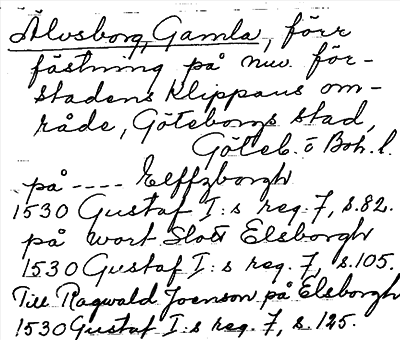 Älvsborg, Gamla, förr
fästning på nuv. för-
stadens Klippans om-
råde, Göteborgs stad,
Göteb. o Boh. l.
på ---- Elffzborgh
1530 Gustaf I:s reg. 7, s. 82.
på wort Slott Elsborgh
1530 Gustaf I:s reg. 7, s. 105.
Till Ragwald Joenson på Elsborgh
1530 Gustaf I:s reg. 7, s. 125.